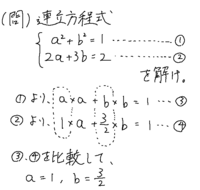 (問) 連立方程式
a²+b²=1 ………… ①
2a+3b=2 ………… ②
を解け。
①より、a×a+b×b=1 … ③
②より、1×a+3/2×b=1 … ④
③、④を比較して、
a=1, b=3/2